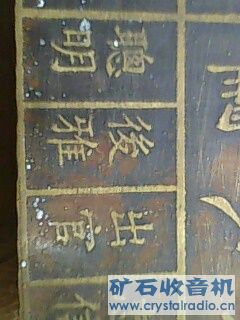 聰明
後雅
出官
矿石收音机
www.crystalradio.cn